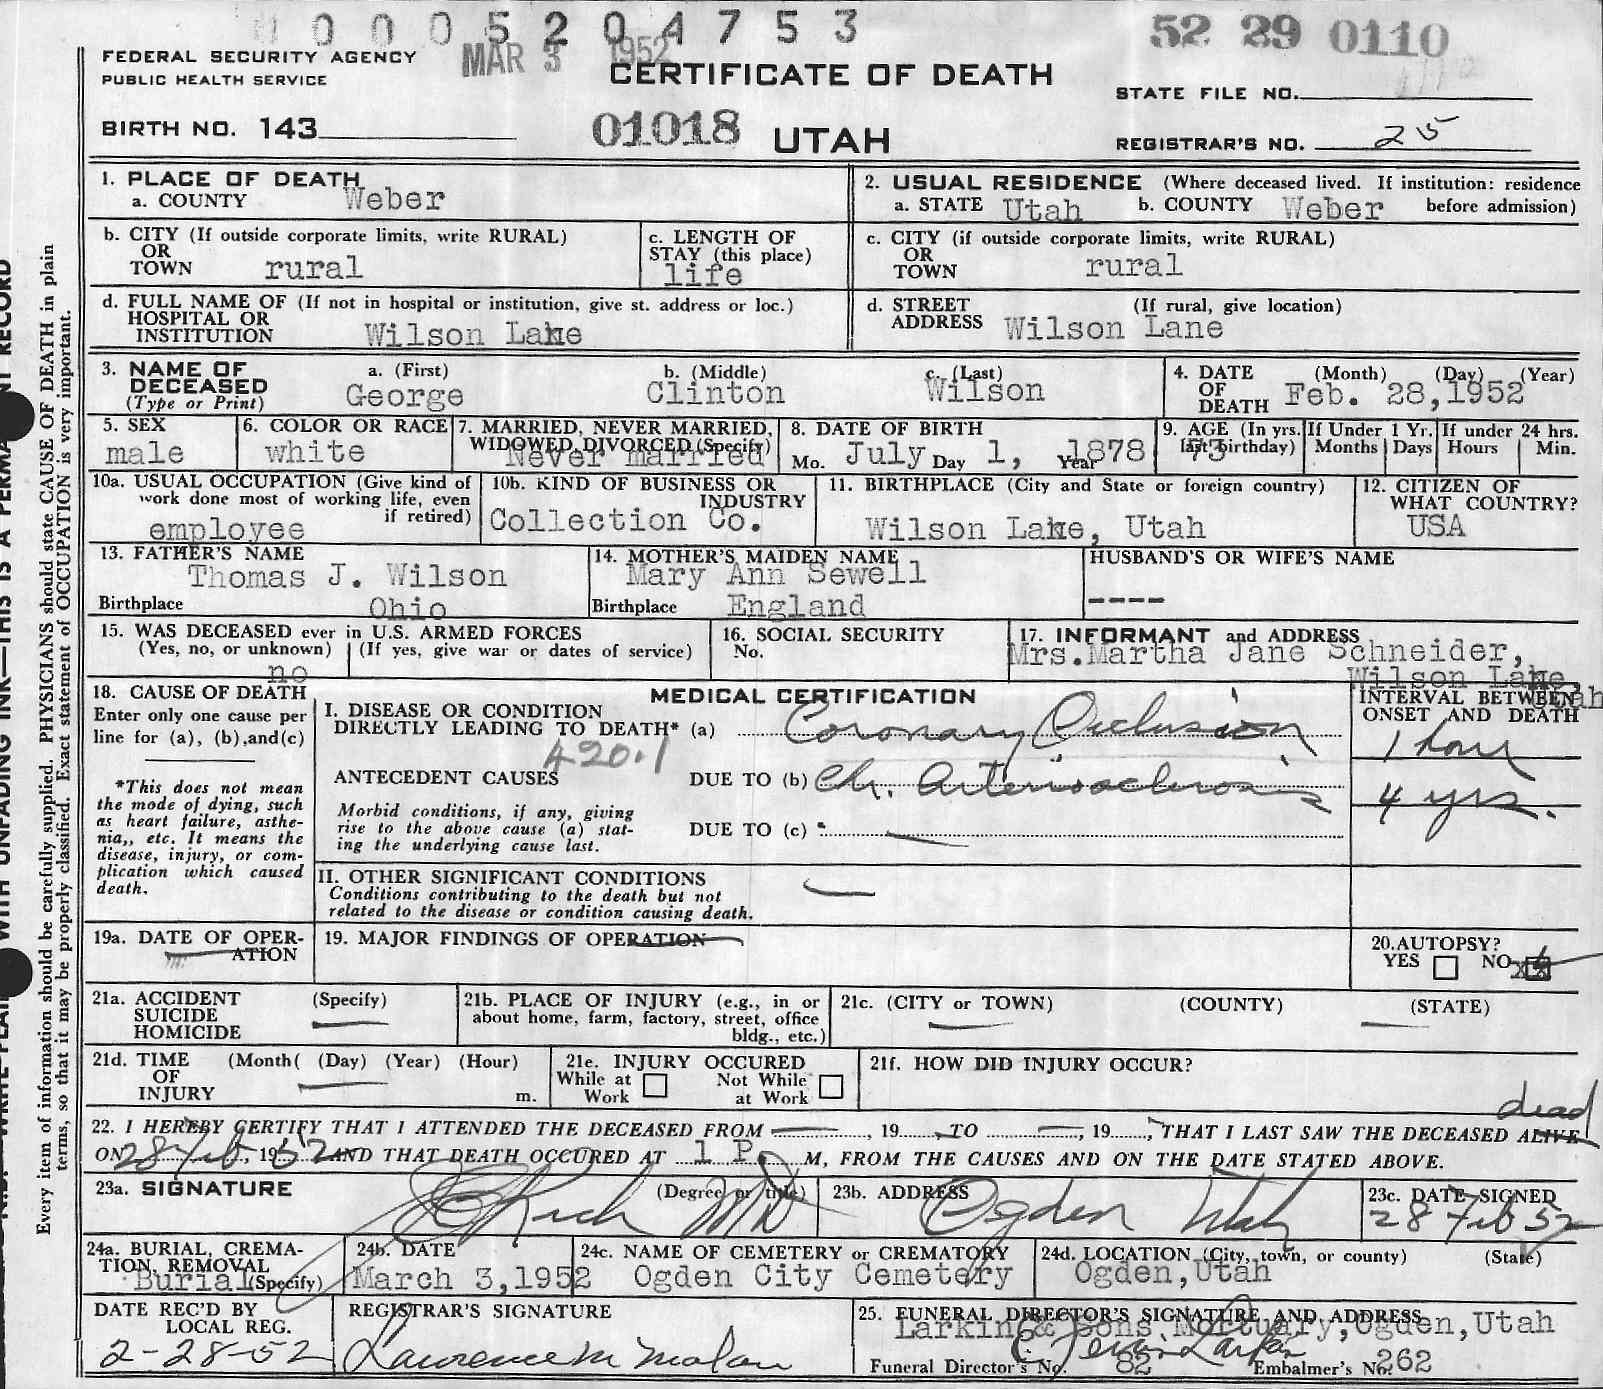 0 0 0 5 2 0 4 7 5 3
52 29 0110
FEDERAL SECURITY AGENCY
PUBLIC HEALTH SERVICE
MAR 3 1952
CERTIFICATE OF DEATH
STATE FILE NO.
BIRTH NO. 143
01018 UTAH
REGISTRAR'S NO. 25
1. PLACE OF DEATH
a. COUNTY Weber
2. USUAL RESIDENCE (Where deceased lived. If institution: residence
a. STATE Utah b. COUNTY Weber before admission)
b. CITY (If outside corporate limits, write RURAL)
OR
TOWN rural
c. LENGTH OF
STAY (this place)
life
c. CITY (if outside corporate limits, write RURAL)
OR
TOWN rural
d. FULL NAME OF (If not in hospital or institution, give st. address or loc.)
HOSPITAL OR
INSTITUTION Wilson Lane
d. STREET (If rural, give location)
ADDRESS Wilson Lane
3. NAME OF
DECEASED
(Type or Print)
a. (First) b. (Middle) c. (Last)
George Clinton Wilson
4. DATE (Month) (Day) (Year)
OF
DEATH Feb. 28,1952
5. SEX
male
6. COLOR OR RACE
white
7. MARRIED, NEVER MARRIED,
WIDOWED, DIVORCED (Specify)
Never married
8. DATE OF BIRTH
Mo. July Day 1, Year 1878
9. AGE (In yrs.
last birthday)
73
If Under 1 Yr.
Months Days
If under 24 hrs.
Hours Min.
10a. USUAL OCCUPATION (Give kind of
work done most of working life, even
if retired)
employee
10b. KIND OF BUSINESS OR
INDUSTRY
Collection Co.
11. BIRTHPLACE (City and State or foreign country)
Wilson Lane, Utah
12. CITIZEN OF
WHAT COUNTRY?
USA
13. FATHER'S NAME
Thomas J. Wilson
Birthplace Ohio
14. MOTHER'S MAIDEN NAME
Mary Ann Sewell
Birthplace England
HUSBAND'S OR WIFE'S NAME
----
15. WAS DECEASED ever in U.S. ARMED FORCES
(Yes, no, or unknown) (If yes, give war or dates of service)
no
16. SOCIAL SECURITY
No.
17. INFORMANT and ADDRESS
Mrs.Martha Jane Schneider,
Wilson Lane,
Utah
18. CAUSE OF DEATH
Enter only one cause per
line for (a), (b),and(c)
*This does not mean
the mode of dying, such
as heart failure, asthe-
nia,, etc. It means the
disease, injury, or com-
plication which caused
death.
MEDICAL CERTIFICATION
I. DISEASE OR CONDITION
DIRECTLY LEADING TO DEATH* (a) Coronary Occlusion
420.1
ANTECEDENT CAUSES DUE TO (b) Chr. Arteriosclerosis
Morbid conditions, if any, giving
rise to the above cause (a) stat-
ing the underlying cause last.
DUE TO (c)
INTERVAL BETWEEN
ONSET AND DEATH
1 hour
4 yrs.
II. OTHER SIGNIFICANT CONDITIONS
Conditions contributing to the death but not
related to the disease or condition causing death.
19a. DATE OF OPER-
ATION
19. MAJOR FINDINGS OF OPERATION
20.AUTOPSY?
YES NO
21a. ACCIDENT (Specify)
SUICIDE
HOMICIDE
21b. PLACE OF INJURY (e.g., in or
about home, farm, factory, street, office
bldg., etc.)
21c. (CITY or TOWN) (COUNTY) (STATE)
21d. TIME (Month( (Day) (Year) (Hour)
OF
INJURY m.
21e. INJURY OCCURED
While at Work Not While at Work
21f. HOW DID INJURY OCCUR?
dead
22. I HEREBY CERTIFY THAT I ATTENDED THE DECEASED FROM , 19 TO , 19 , THAT I LAST SAW THE DECEASED ALIVE
ON 28 Feb, 1952 AND THAT DEATH OCCURED AT 1 P. M, FROM THE CAUSES AND ON THE DATE STATED ABOVE.
23a. SIGNATURE (Degree or title)
Rich MD
23b. ADDRESS
Ogden Utah
23c. DATE SIGNED
28 Feb 52
24a. BURIAL, CREMA-
TION, REMOVAL
Burial (Specify)
24b. DATE
March 3,1952
24c. NAME OF CEMETERY or CREMATORY
Ogden City Cemetery
24d. LOCATION (City, town, or county) (State)
Ogden,Utah
DATE REC'D BY
LOCAL REG.
2-28-52
REGISTRAR'S SIGNATURE
Lawrence M Malan
25. FUNERAL DIRECTOR'S SIGNATURE AND ADDRESS
Larkin & Sons Mortuary,Ogden,Utah
Larkin
Funeral Director's No. 82 Embalmer's No. 262
Every item of information should be carefully supplied. PHYSICIANS should state CAUSE OF DEATH in plain
terms, so that it may be properly classified. Exact statement of OCCUPATION is very important.
WITH UNFADING INK—THIS IS A PERMANENT RECORD